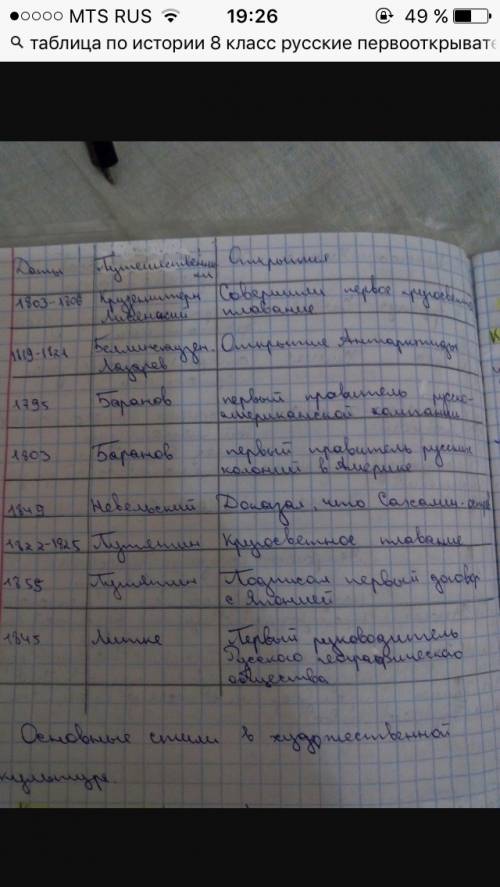 MTS RUS 19:26 49 %
таблица по истории 8 класс русские первооткрывате
Даты Путешественни Открытия
ки
1803-1806 Крузенштерн Совершили первое кругосветн
Лисянский плавание
1819-1821 Беллинсгаузен. Открытие Антарктиды
Лазарев
1795 Баранов первый правитель русско-
американской компании
1803 Баранов первый правитель русских
колоний в Америке
1849 Невельский Доказал, что Сахалин-остров
1822-1825 Путятин Кругосветное плавание
1855 Путятин Подписал первый договор
с Японией
1845 Литке Первый руководитель
Русского географического
общества
Основные стили в художественной
культуре.